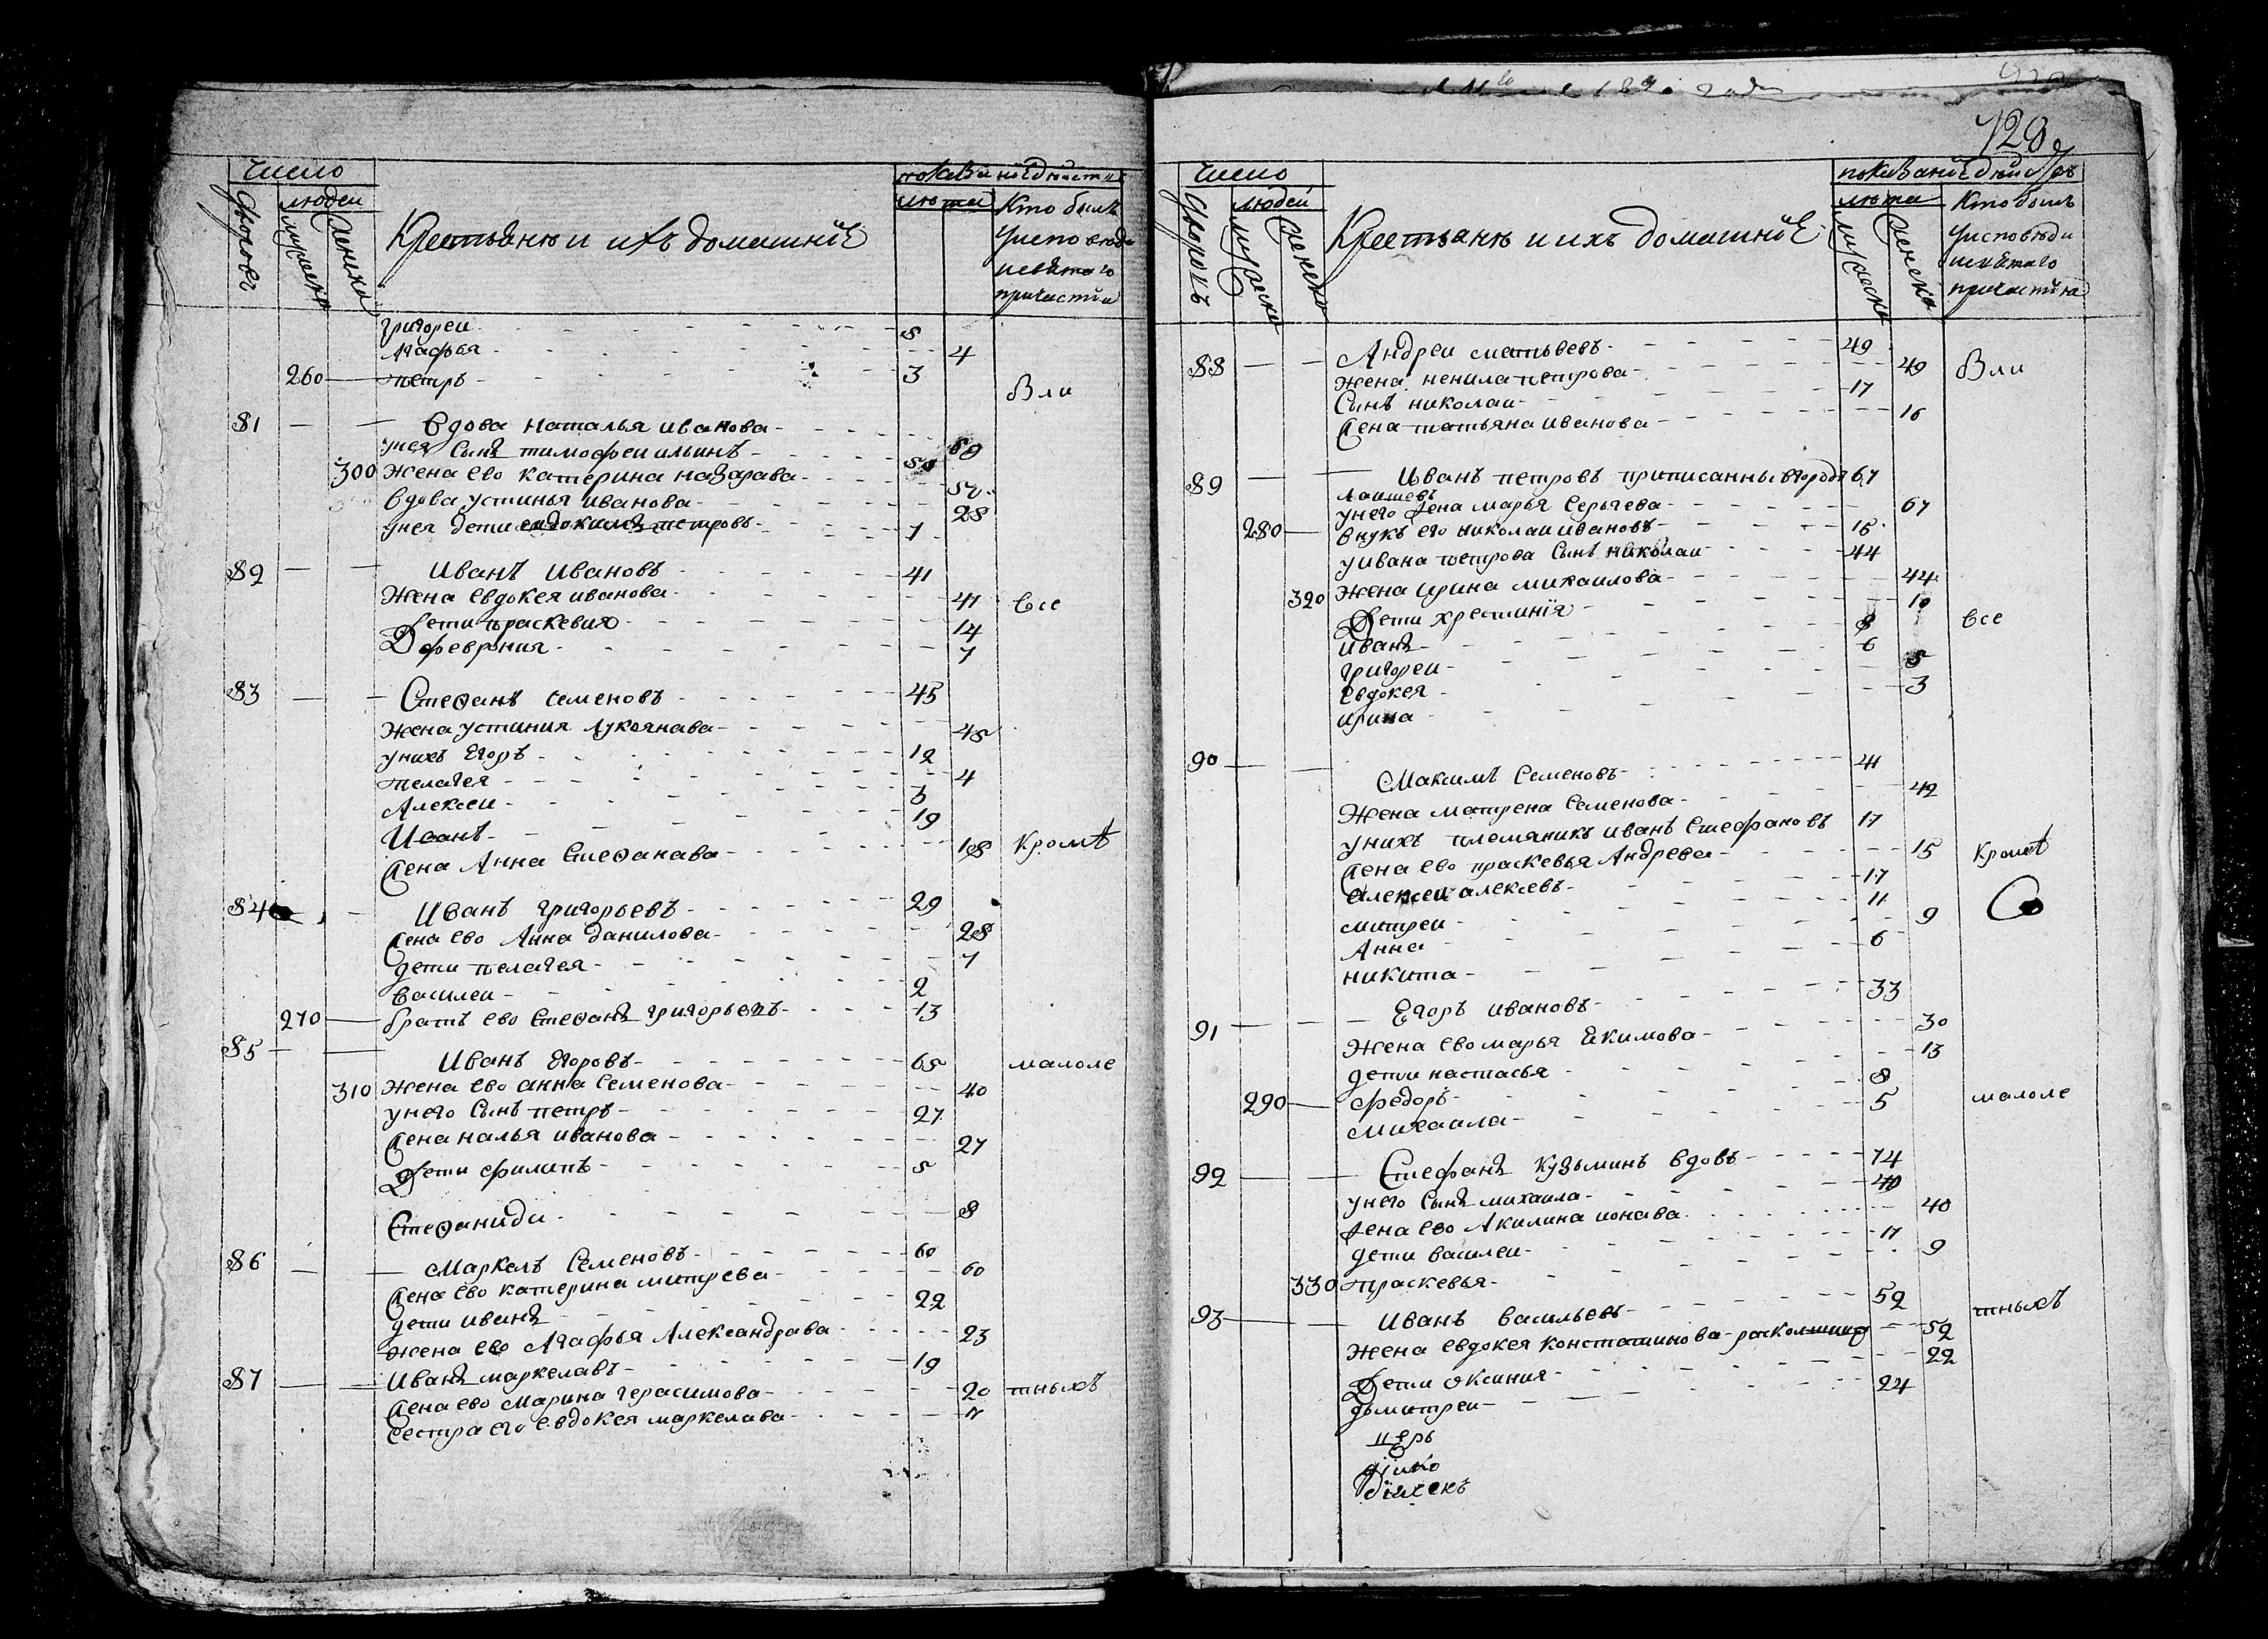 число
людей
Дворовъ
мужеска
женска
Крестьяне и ихъ домашнiе
лѣта
Кто былъ
у исповѣди
и святаго
причастiя
Григореи 8
Агафья 4
260 Петръ 3
Были
81 Вдова наталья иванова
у нея Сынъ тимофеи ильинъ
300 Жена ево катерина назарава
вдова устинья иванова 28
у нея дети евдокимъ петровъ 7
82 Иванъ Ивановъ 41
Жена евдокея иванова 41 все
Дети праскевия 14
феврония 7
83 Стеѳанъ семеновъ 45
жена устиния лукоянава 45
у нихъ Егоръ 12
пелагея 4
Алексеи 3
Иванъ 19
жена Анна Стеѳанава 18 Кромѣ
84 Иванъ григорьевъ 29
жена ево Анна данилова 28
дети пелагея 7
Василеи 2
270 братъ ево Стеѳанъ григорьевъ 13
85 Иванъ Егоровъ 65 малоле
310 Жена ево анна семенова 40
у него Сынъ петръ 27
жена иванова 27
Дети филипъ 5
Стеѳанида 8
86 Маркелъ Семеновъ 60
жена ево катерина митрева 60
дети иванъ 22
жена ево Агафья Александрава 23
87 Иванъ маркелавъ 19
жена ево Марина герасимова 20 тныхъ
Сестра его евдокея маркелава
года
128
число
людей
Дворовъ
мужеска
женска
Крестьяне и ихъ домашнiе
лѣта
мужеска
женска
Кто былъ
у исповѣди
и святаго
причастiя
88 Андреи матвѣевъ 49
жена ненила петрова 49 Были
Сынъ николаи 17
жена татьяна иванова 16
89 Иванъ петровъ приписанны в городъ 67
лаишевъ
у него жена марья Сергеева 67
280 внукъ его николаи ивановъ 15
у ивана петрова Сынъ николаи 44
320 жена ирина михаилова 44
Дети хрестинiя 10
иванъ 8 все
григореи 6
Евдокея 5
ирина 3
90 Максимъ Семеновъ 41
Жена матрена Семенова 42
у нихъ племяникъ иванъ Стефановъ 17
жена ево праскевья Андрева 15 Кромѣ
алексеи алексевъ 17
митреи 11
Анна 9
никита 6
91 Егоръ ивановъ 33
Жена ево марья Екимова 30
дети настасья 13
290 федоръ 8 малоле
михаила 5
92 Стефанъ Кузьминъ вдовъ 74
у него Сынъ михаила 40
жена ево Акилина ионава 40
дети василеи 11
330 праскевья 9
93 Иванъ васильевъ 52 тныхъ
Жена евдокея констатинова 52
Дети оксиния 22
дьмитреи 24